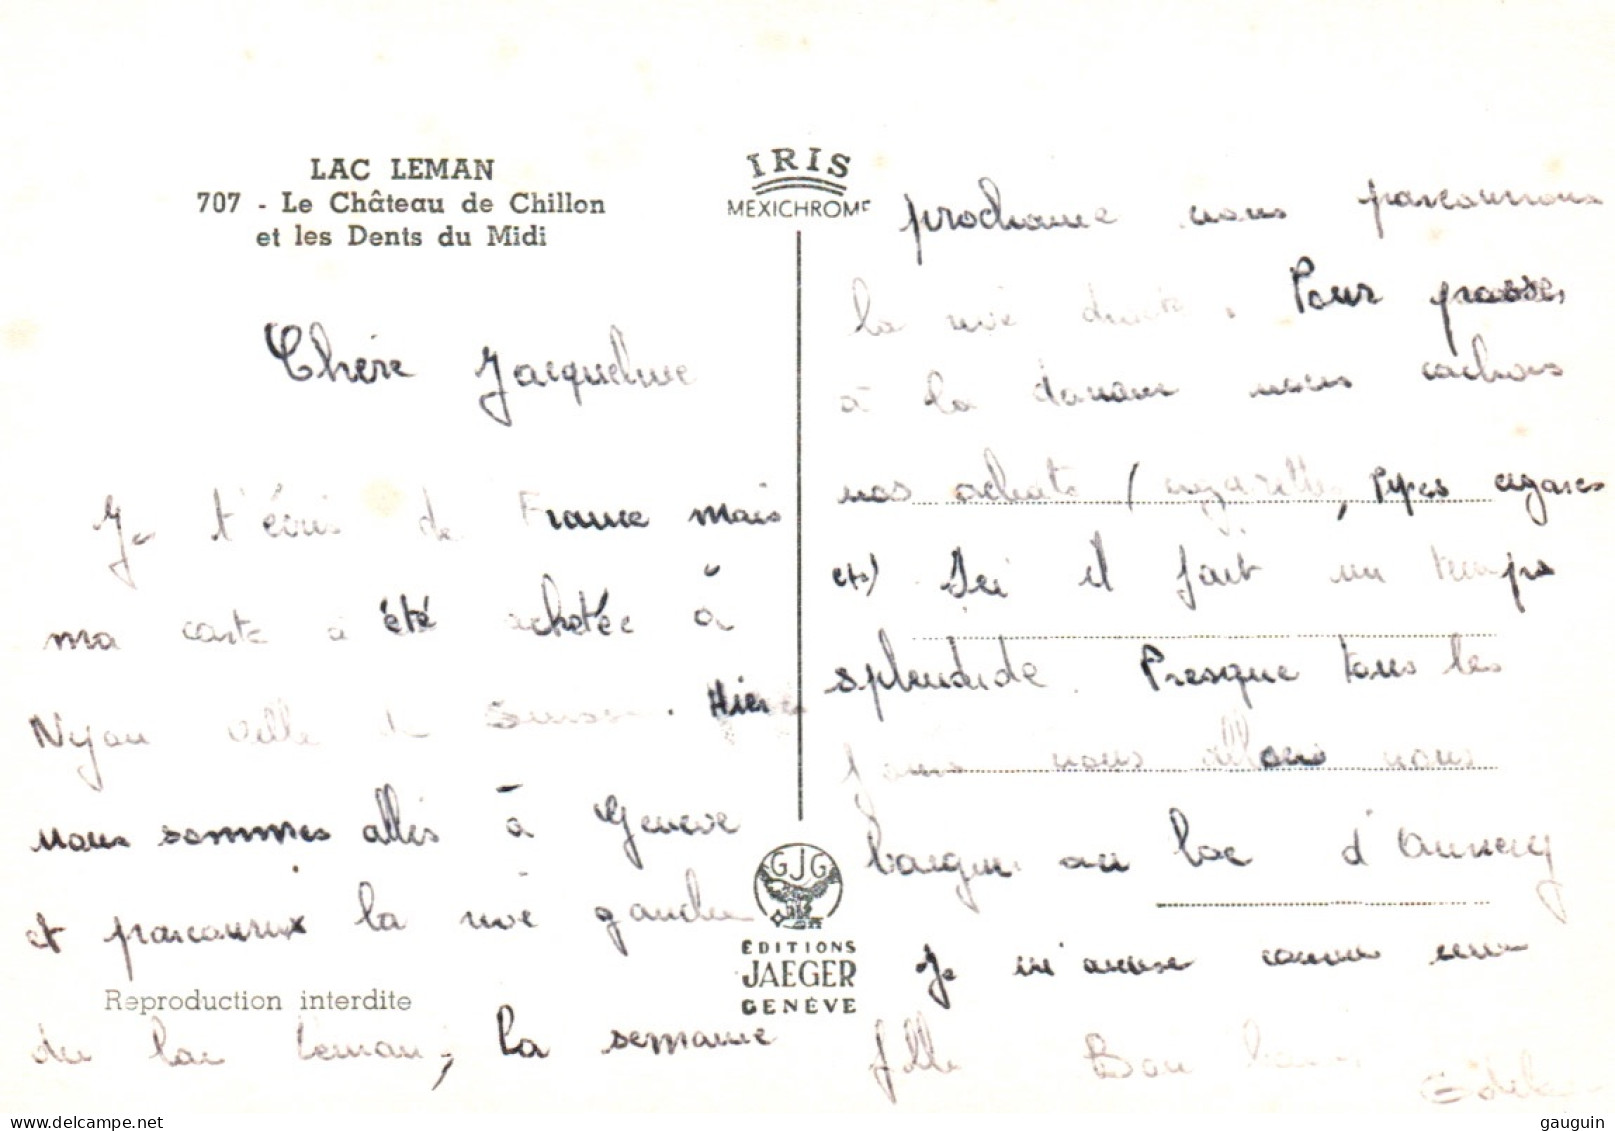 LAC LEMAN
707 - Le Château de Chillon
et les Dents du Midi
Chère Jacqueline
Je t'écris de France mais
ma carte a été achetée à
Nyon ville de Suisse. Hier
nous sommes allés à Genève
et parcourux la rive gauche
Reproduction interdite
du lac Leman, la semaine
IRIS
MEXICHROME
GJG
ÉDITIONS
JAEGER
GENÈVE
prochaine nous parcourrons
la rive droite. Pour passer
à la douane nous cachons
nos achats (cigarettes, Pipes cigares
etc) Ici il fait un temps
splendide. Presque tous les
jours nous allons nous
baigner au lac d'Annecy
Je m'amuse comme une
folle Bon
gauguin